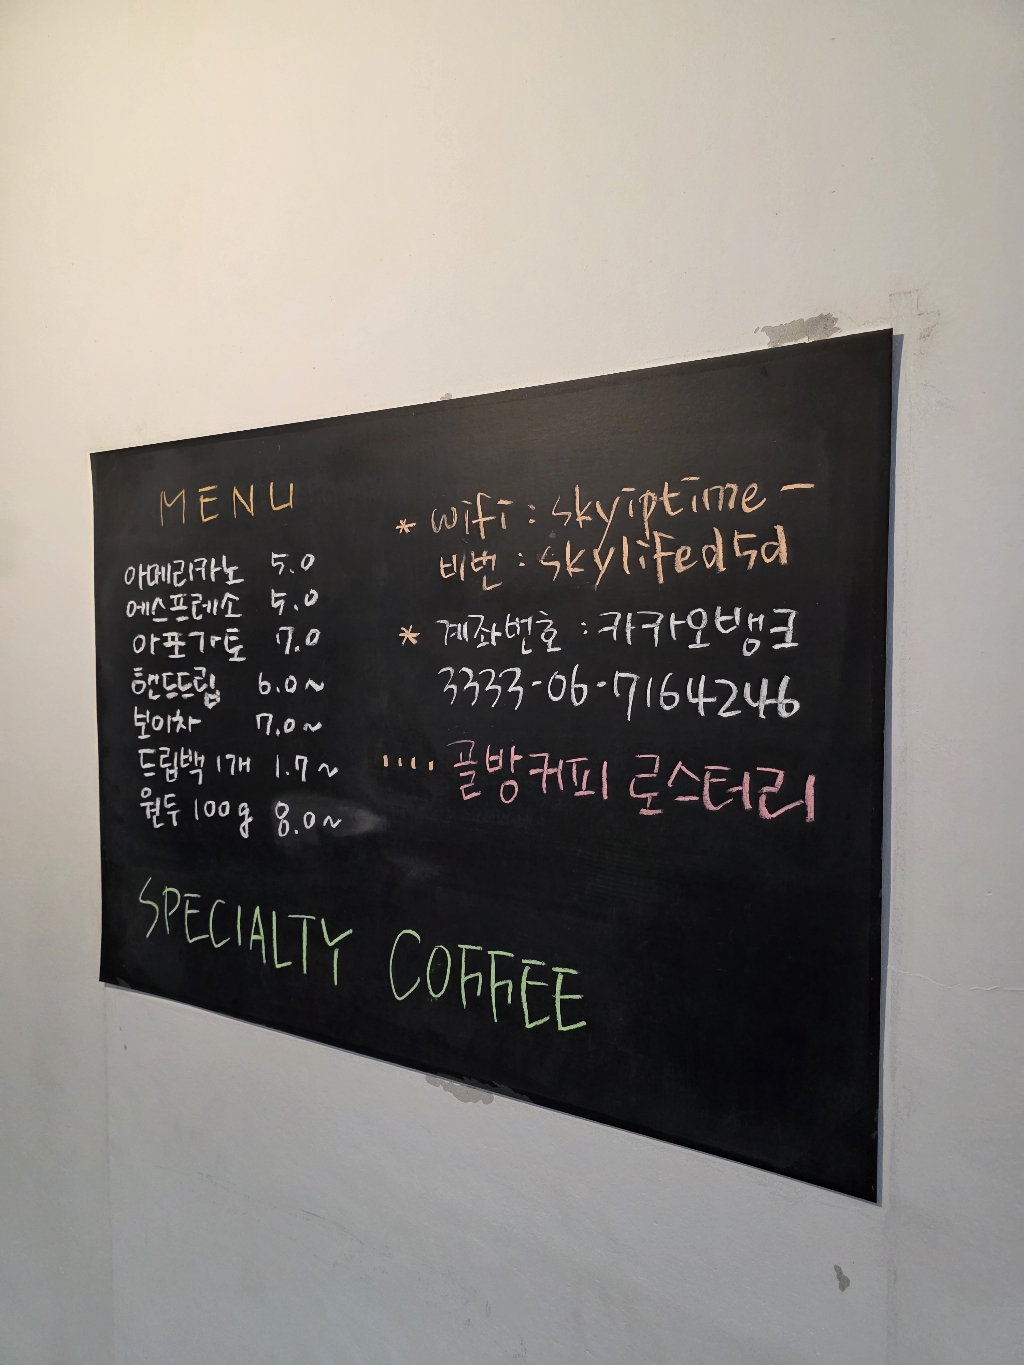 MENU
아메리카노 5.0
에스프레소 5.0
아포가토 7.0
핸드드립 6.0~
보이차 7.0~
드립백 1개 1.7~
원두 100g 8.0~
* wifi : skyiptime -
비번 : skylifed5d
* 계좌번호 : 카카오뱅크
3333-06-7164246
.... 골방커피 로스터리
SPECIALTY COFFEE